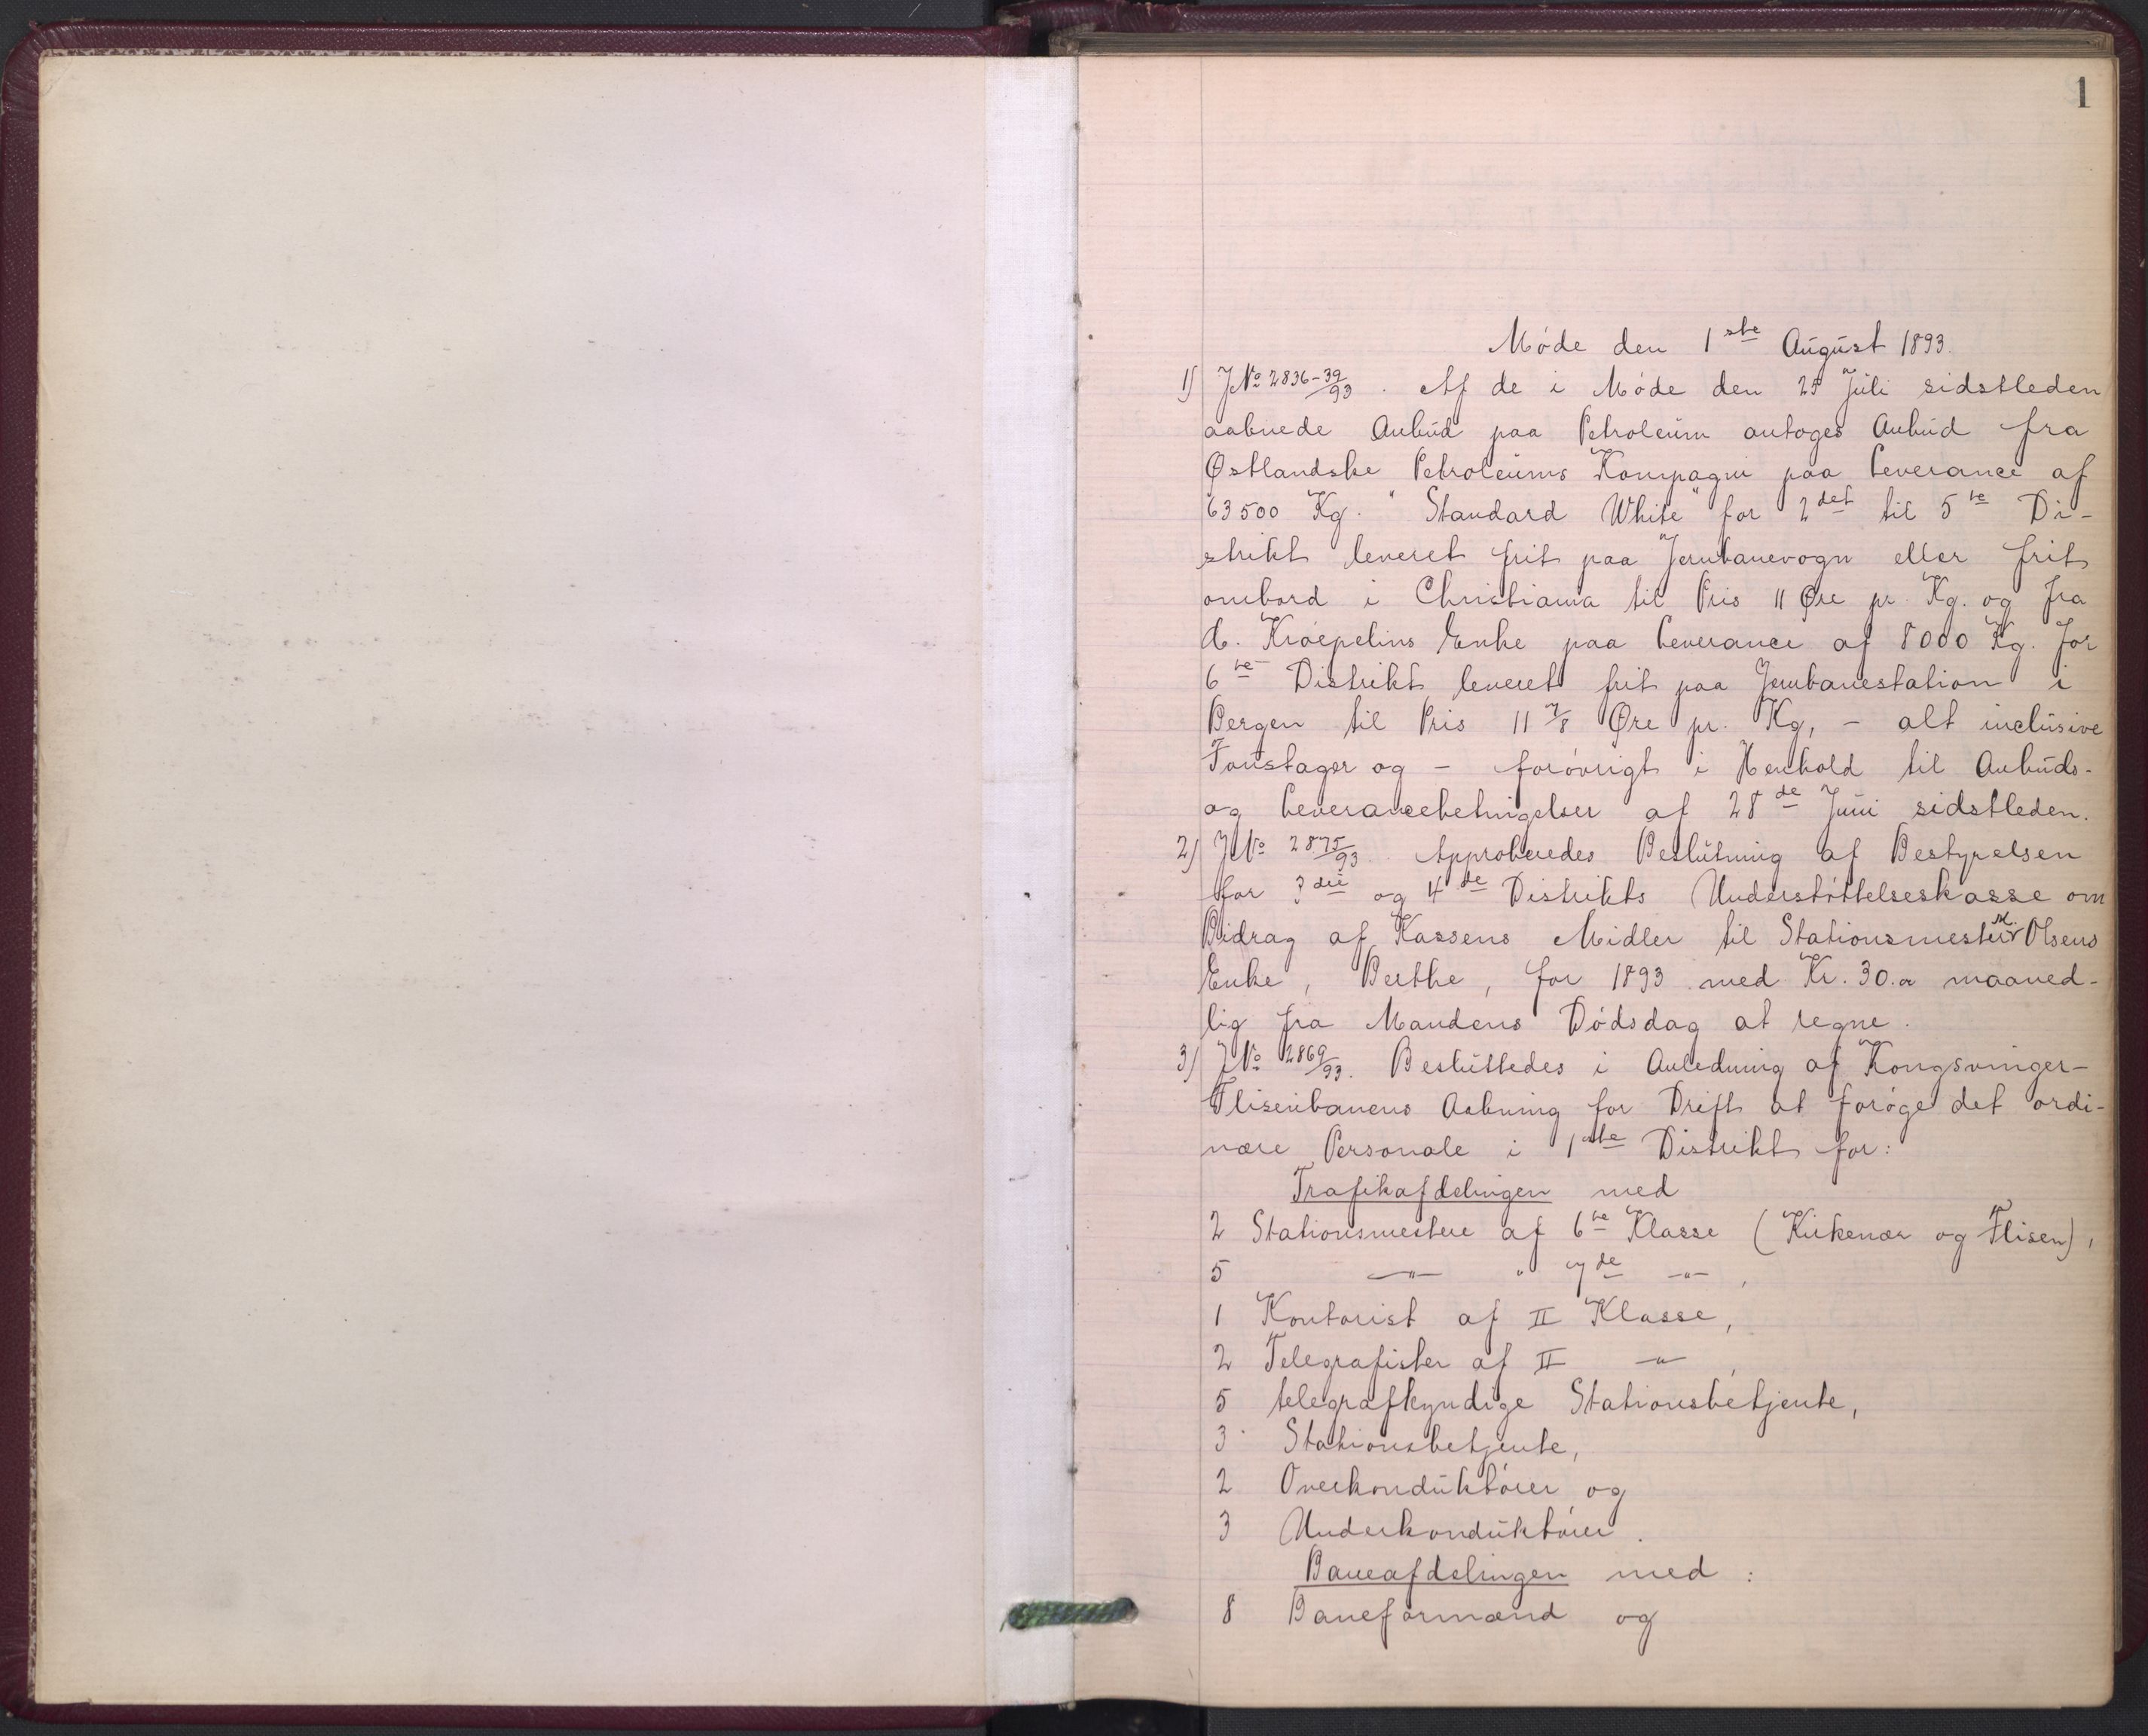 1
Møde den 1ste August 1893.
1) JNo 2836-39/93. Af de i Møde den 25 Juli sidstleden
aabnede Anbud paa Petroleum antoges Anbud fra
Østlandske Petroleums Kompagni paa Leverance af
63500 Kg. "Standard White" for 2det til 5te Di-
strikt leveret frit paa Jernbanevogn eller frit
ombord i Christiania til Pris 11 Øre pr. Kg. og fra
A. Krøepelins Enke paa Leverance af 8000 Kg. for
6te Distrikt leveret frit paa Jernbanestation i
Bergen til Pris 11 7/8 Øre pr. Kg, - alt inclusive
Fonstager og - forøvrigt i Henhold til Anbuds-
og Leverancebetingelser af 28de Juni sidstleden.
2) JNo 2875/93. Approberedes Beslutning af Bestyrelsen
for 3die og 4de Distrikts Understøttelseskasse om
Bidrag af Kassens Midler til Stationsmester M. Olsens
Enke, Berthe, for 1893 med Kr. 30.00 maaned-
lig fra Mandens Dødsdag at regne.
3) JNo 2869/93. Besluttedes i Anledning af Kongsvinger-
Flisenbanens Aabning for Drift at forøge det ordi-
nære Personale i 1ste Distrikt for:
Trafikafdelingen med
2 Stationsmestere af 6te Klasse (Kirkenær og Flisen),
5 —"— " 7de —"—,
1 Kontorist af II Klasse,
2 Telegrafister af II —"—,
5 telegrafkyndige Stationsbetjente,
3 Stationsbetjente,
2 Overkonduktører og
3 Underkonduktører.
Baneafdelingen med:
8 Baneformænd og